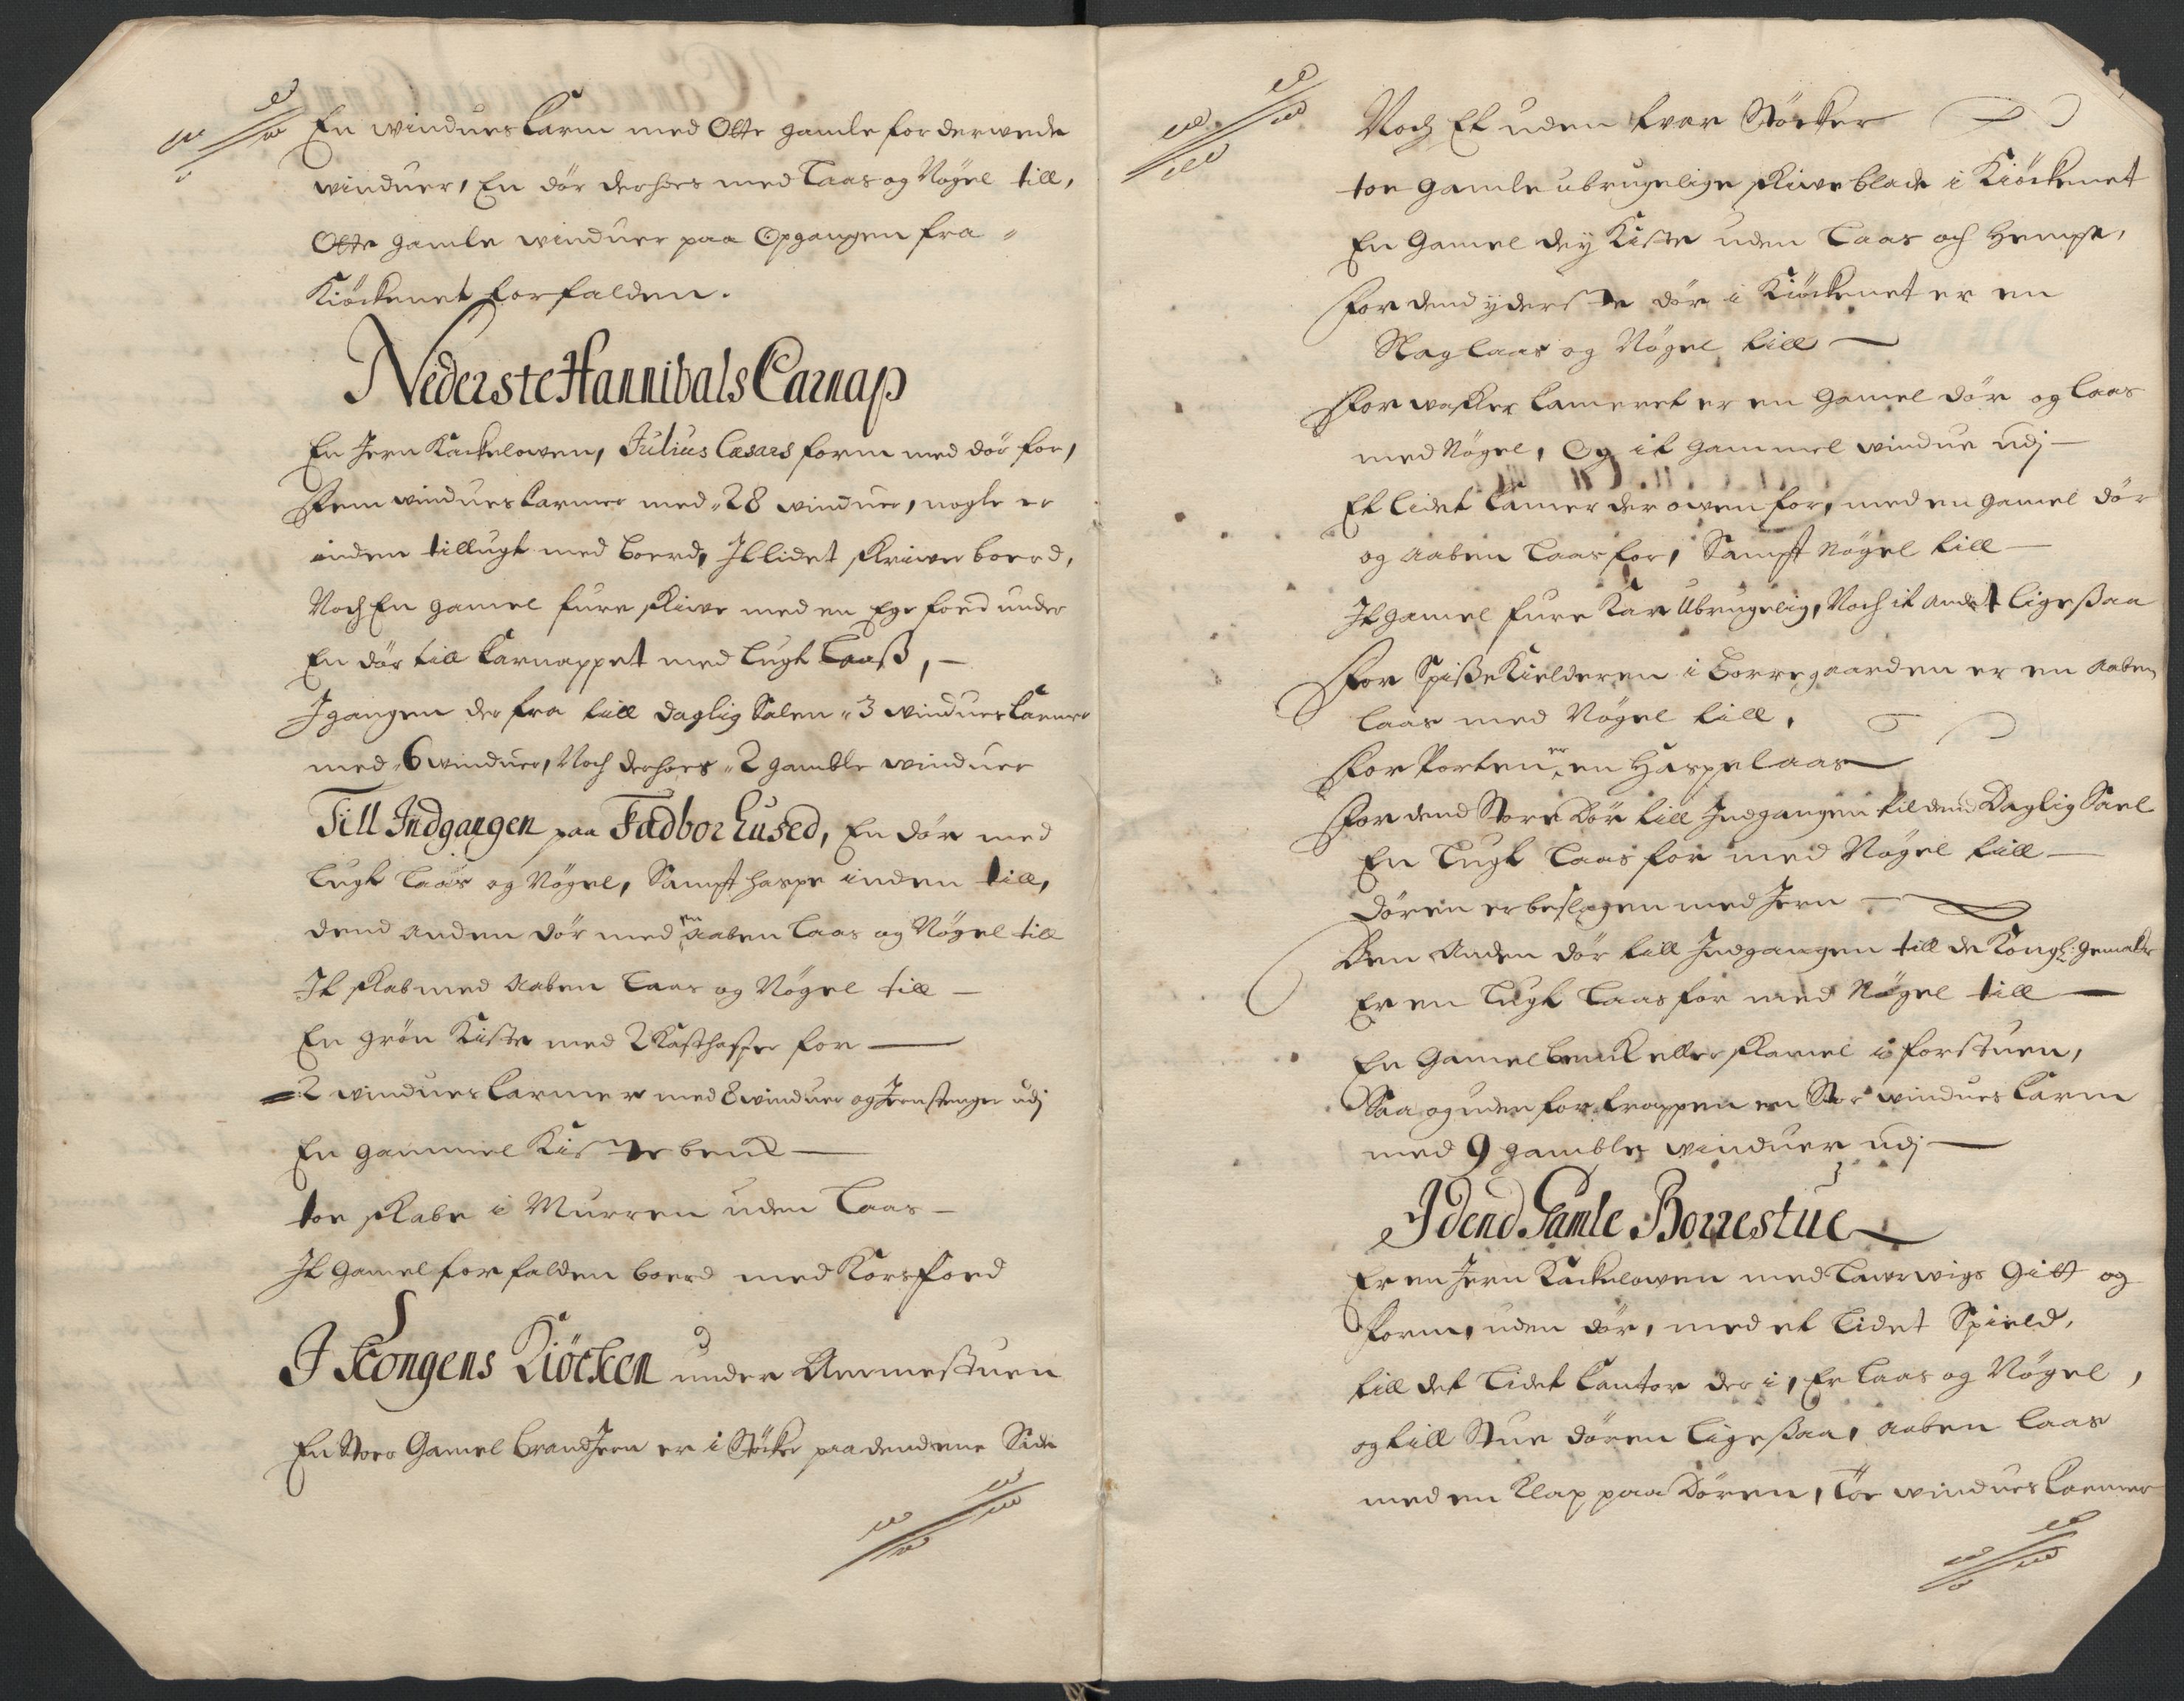 En windues Carm med Otte gamle forderwede
vinduer, En dör derhoes med Laas og Nögel till,
Otte gamle winduer paa Opgangen fra
Kiöckenet forfalden.
Nederste Hannibals Carnap
En Jern Kackelowen, Julius Cæsars form med dör for,
Fem windues Carmer med 28 vinduer, nogle er
inden tillugt med boerd, It lidet skriwer boerd,
Noch En gamel fure skiwe med en Ege foed under
En dör till Carnappet med lugt Laaß,
I gangen der fra till daglig Salen 3 vindues Carmer
med 6 winduer, Noch derhoes 2 gamble winduer
Till Indgangen paa Fadborhused, En dör med
lugt laas og Nögel, Sampt haspe inden till,
dend anden dör med en aaben Laas og Nögel till
It skab med Aaben Laas og Nögel till
En grön Kiste med 2 Kasthasper for
2 windues Carmer med 8 winduer og Jernstenger udj
En gammel Kistebenk
toe skabe i Murren uden Laas
It gamel forfalden boerd med Korsfoed
I Kongens Kiöcken under Ammestuen
En Stoer Gamel brandJern er i Stöcker paa dend ene Side
Noch Et uden tvær Stöcker
toe gamle ubrugelige skiwe blade i Kiöckenet
En Gamel dey Kiste uden Laas och hempe,
For dend yderste dör i Kiöckenet er en
Slag laas og Nögel till
For wasker Cameret er en gamel dör og laas
med Nögel, Og it gammel vindue udj
Et lidet Camer der owen for, med en gamel dör
og aaben Laas for, Sampt Nögel till
It gamel fure Kar Ubrugelig, Noch it andet ligeßaa
For Spiße Kielderen i Borregaarden er en aaben
laas med Nögel till,
For Porten er en Haspelaas
For dend Store dör till Indgangen til dend Daglig Sael
En Lugt Laas for med Nögel till
dören er beslagen med Jern
Den Anden dör till Indgangen till de Kongl: gemaker
Er en Lugt Laas for med Nögel till
En Gamel benk eller skamel i forstuen,
Saa og uden for trappen en Stor windues Carm
med 9 gamble winduer udj
I dend Gamle Borrestue
Er en Jern Kackelowen med Laurwigs gitt og
form, uden dör, med et lidet Spield,
till det lidet Cantor der i, Er Laas og Nögel,
og till Stue dören ligeßaa, aaben laas
med en klap paa dören, Toe windues Carmer